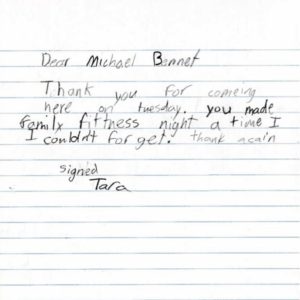 Dear Michael Bennet
Thank you for comeing
here on tuesday. you made
family fittness night a time I
I couldn't forget. thank again
signed
Tara